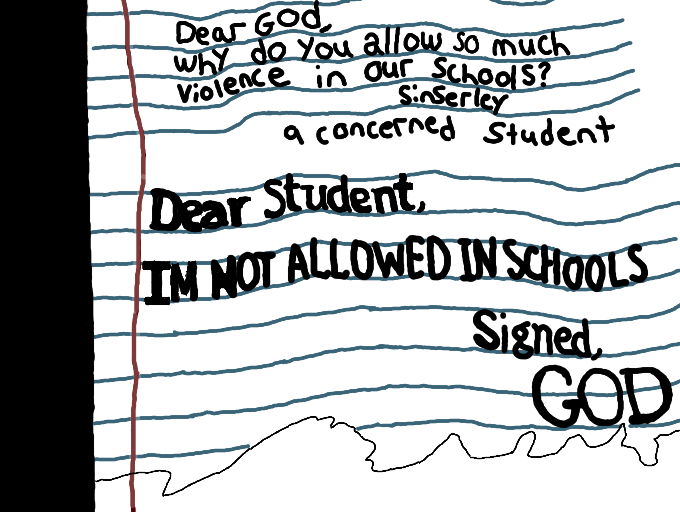 Dear GOD,
why do you allow so much
violence in our schools?
Sinserley
a concerned student
Dear Student,
IM NOT ALLOWED IN SCHOOLS
Signed,
GOD